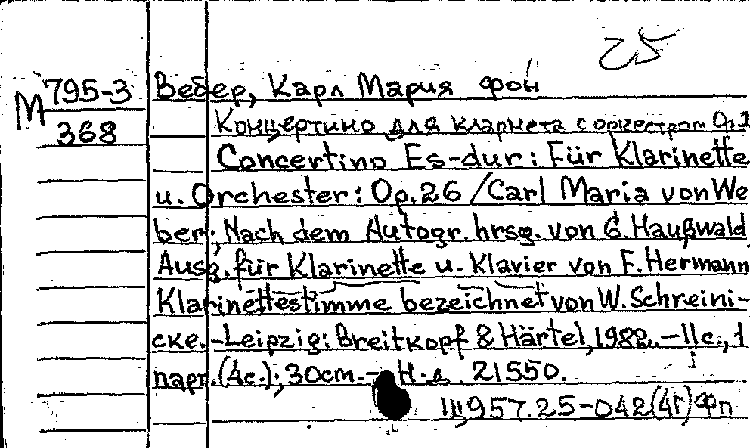 25
М 795-3
368
Вебер, Карл Мария фон
Концертино для кларнета с оркестром Op.
Concertino Es-dur: Für Klarinette
u. Orchester: Op.26 / Carl Maria von We
ber; Nach dem Autogr. hrsg. von G. Haußwald
Ausg. für Klarinette u. Klavier von F. Hermann
Klarinettestimme bezeichnet von W. Schreini-
cke.-Leipzig: Breitkopf & Härtel, 1982.-11с., 1
парт.(4с.); 30cm.- Н.д. 21550.
957.25-042(4Г)Фп